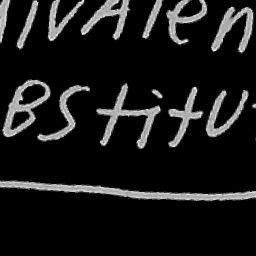 ivAlen
BStitu